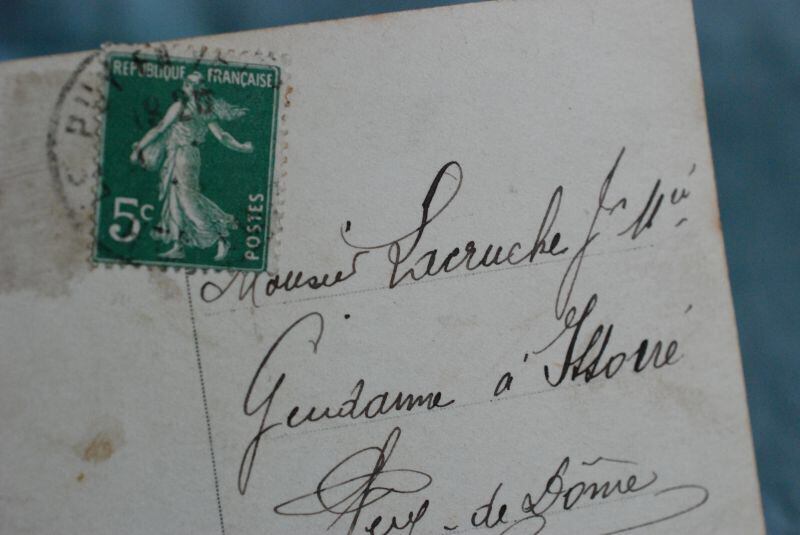 REPUBLIQUE FRANÇAISE
5c
POSTES
Monsieur Lacruche
Gendarme à Issoire
Puy-de Dôme